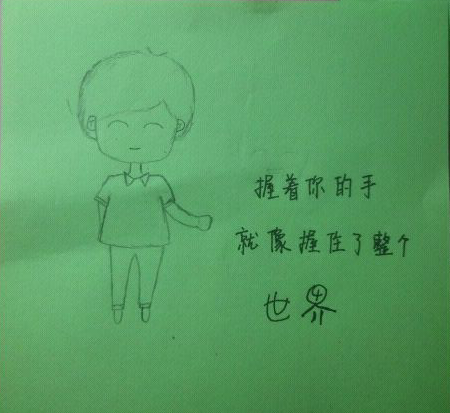 握着你的手
就像握住了整个
世界